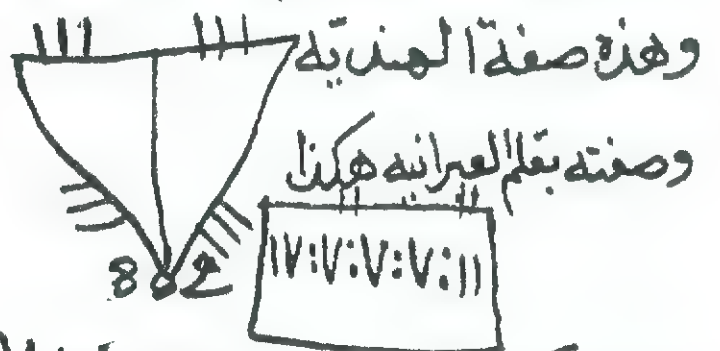 وهذه صفة الهندية
وصفته بقلم العبرانية هكذا
١٧:٧:٧:٧:١١
8 ه ع